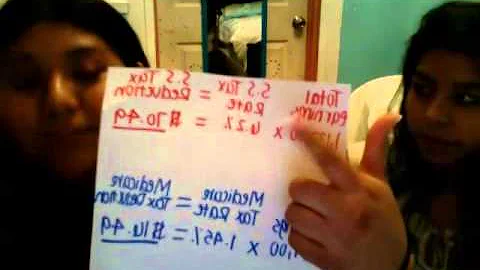 Total S.S Tax S.S Tax
Rate = Deduction
x 6.2% = $70.49
Medicare Medicare
Tax Rate = Tax Deduction
x 1.45% = $16.49